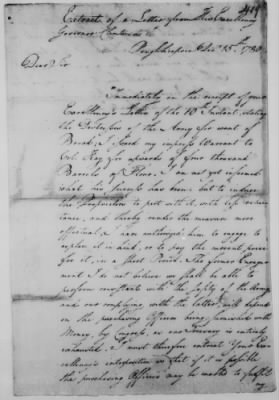 Extract of a Letter from His Excellency
Governor Clinton
Poughkeepsie Decr 15th 1780
Dear Sir
Immediately on the receipt of your
Excellency's Letter of the 10th Instant, stating
the Distresses of the Army for want of
Bread, I issued my impress Warrant to
Col. Hay for upwards of four thousand
Barrels of Flour. I am not yet informed
what his success has been; but to induce
the Proprietors to part with it, with less reluc
tance, and thereby render the measure more
effectual, I have authorized him to engage to
replace it in kind, or to pay the current price
for it, in a short Period. The former Engage
ment I do not believe we shall be able to
perform consistent with the safety of the Army
and our complying with the latter, will depend
on the purchasing Officers being furnished with
Money, by Congress, as our Treasury is entirely
exhausted. I must therefore entreat Your Exce
llency's interposition so that if it is possible
the purchasing Officers may be enabled to fulfil